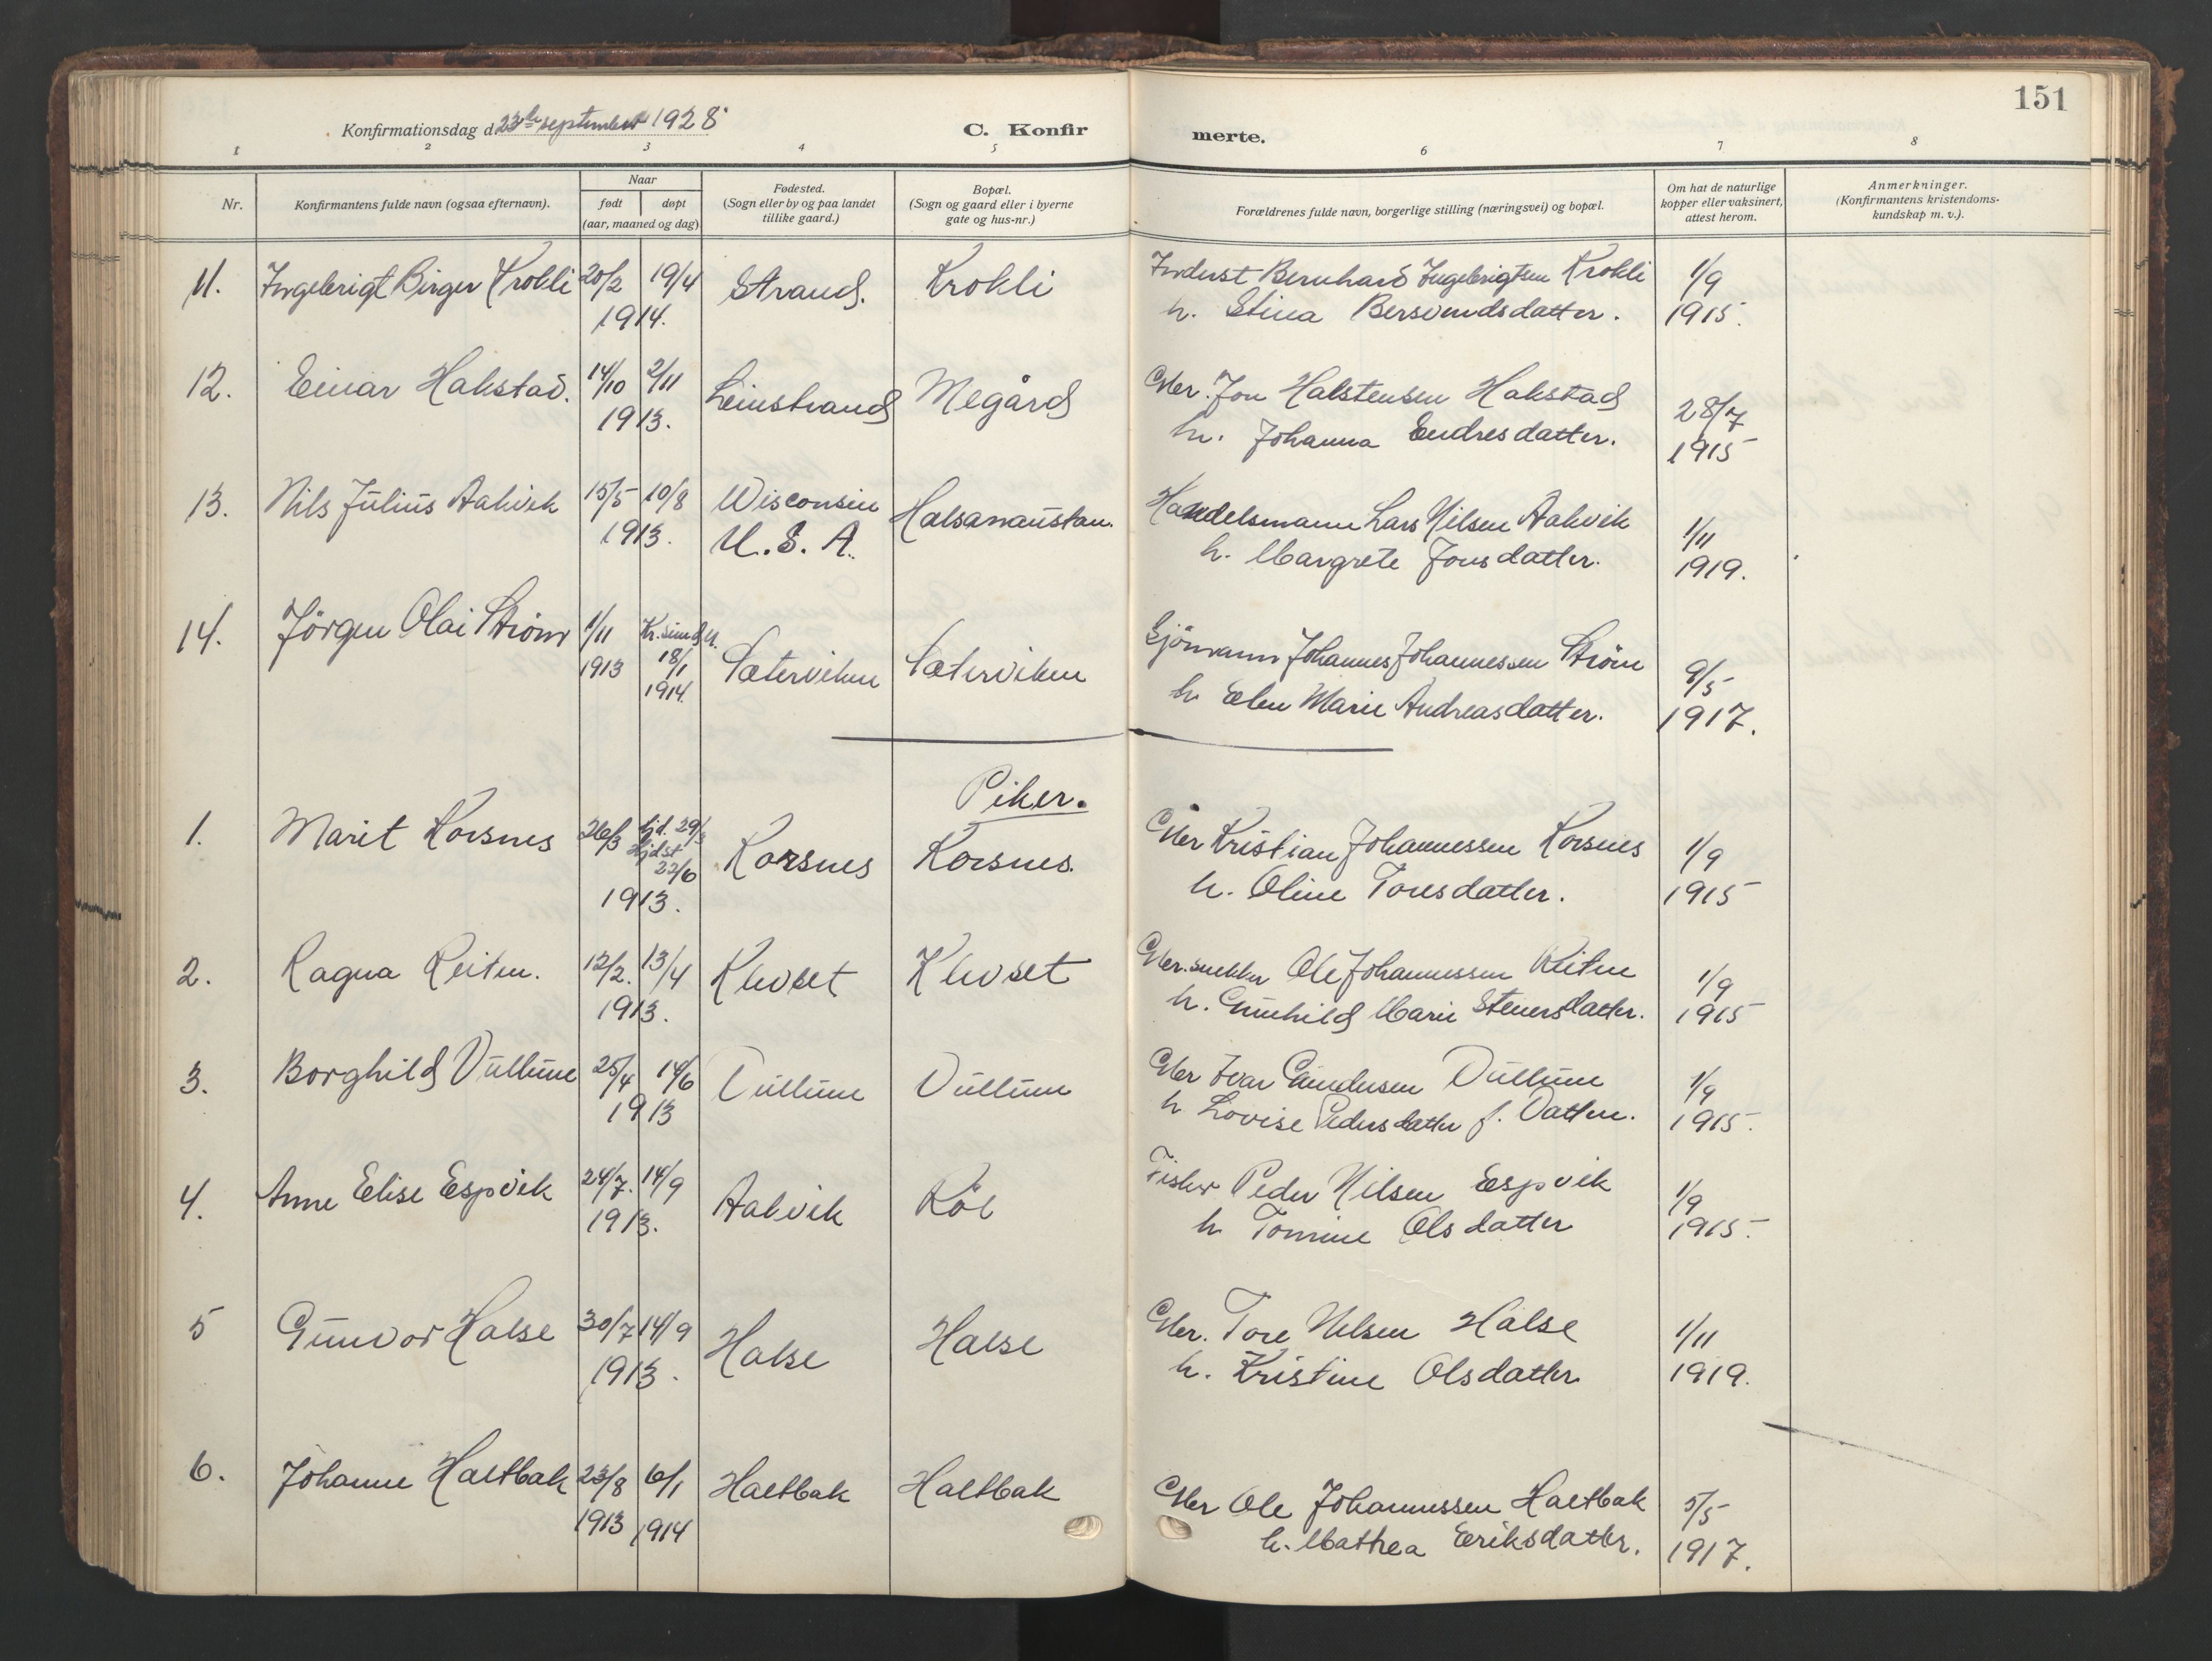 151
Konfirmationsdag d. 23de september 1928.
C. Konfir merte.
1 2 3 4 5 6 7 8
Nr.
Konfirmantens fulde navn (ogsaa efternavn).
Naar
født
døpt
(aar, maaned og dag)
Fødested.
(Sogn eller by og paa landet
tillike gaard.)
Bopæl.
(Sogn og gaard eller i byerne
gate og hus-nr.)
Forældrenes fulde navn, borgerlige stilling (næringsvei) og bopæl.
Om hat de naturlige
kopper eller vaksinert,
attest herom.
Anmerkninger.
(Konfirmantens kristendoms-
kundskap m. v.).
11. Ingebrigt Birger Krokli 20/2 19/4 Strand. Krokli Inderst Bernhard Ingebrigtsen Krokli 1/9
1914. h. Stina Bersvendsdatter. 1915.
12. Einar Hakstad. 14/10 2/11 Leinstrand Megård Gbr. Jon Halstensen Hakstad 28/7
1913. h. Johanna Endresdatter. 1915
13. Nils Julius Aakvik 15/5 10/8 Wisconsin Halsanaustan. Handelsmann Lars Nilsen Aakvik 1/11
1913. U.S.A. h. Margrete Jonsdatter. 1919.
14. Jörgen Olai Ström 1/11 Kr.sund Sæterviken Sæterviken Sjömann Johannes Johannessen Ström 9/5
1913 18/1
1914. h. Elen Marie Andreasdatter. 1917.
Piker.
1. Marit Korsnes 26/3 hjd. 29/3 Korsnes Korsnes. Gbr Kristian Johannessen Korsnes 1/9
22/6
1913. h. Oline Toresdatter. 1915
2. Ragna Reiten. 12/2. 13/4 Klevset Klevset Gbr. snekker Ole Johannessen Reiten 1/9
1913. h. Gunhild Marie Stenersdatter. 1915
3. Borghild Vullum 25/4 14/6 Vullum Vullum Gbr Ivar Gundersen Vullum 1/9
1913 h Lovise Pedersdatter f. Vatten. 1915.
4. Anne Elise Espvik 24/7. 14/9 Aakvik Köl Fisker Peder Nilsen Espvik 1/9
1913. h Tomine Olsdatter 1915.
5 Gunvor Halse 30/7 14/9 Halse Halse Gbr. Tore Nilsen Halse 1/11
1913. h. Kristine Olsdatter 1919.
6. Johanne Haltbak 23/8 6/1 Haltbak Haltbak Gbr Ole Johannessen Haltbak 5/5
1913 1914 h. Mathea Eriksdatter. 1917.